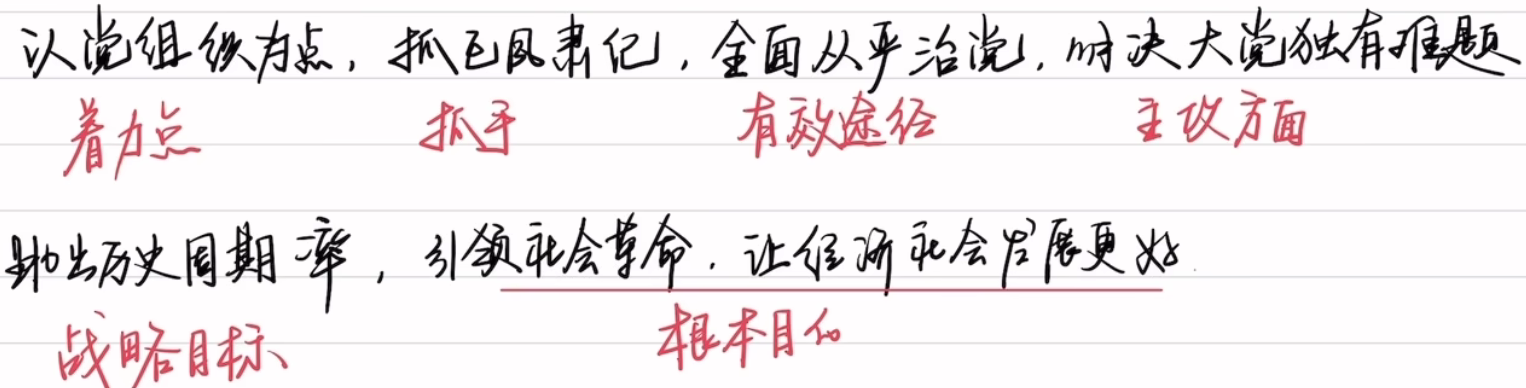 以党组织为点，抓正风肃纪，全面从严治党，解决大党独有难题
着力点 抓手 有效途径 主攻方面
跳出历史周期率，引领社会革命．让经济社会发展更好．
战略目标 根本目的